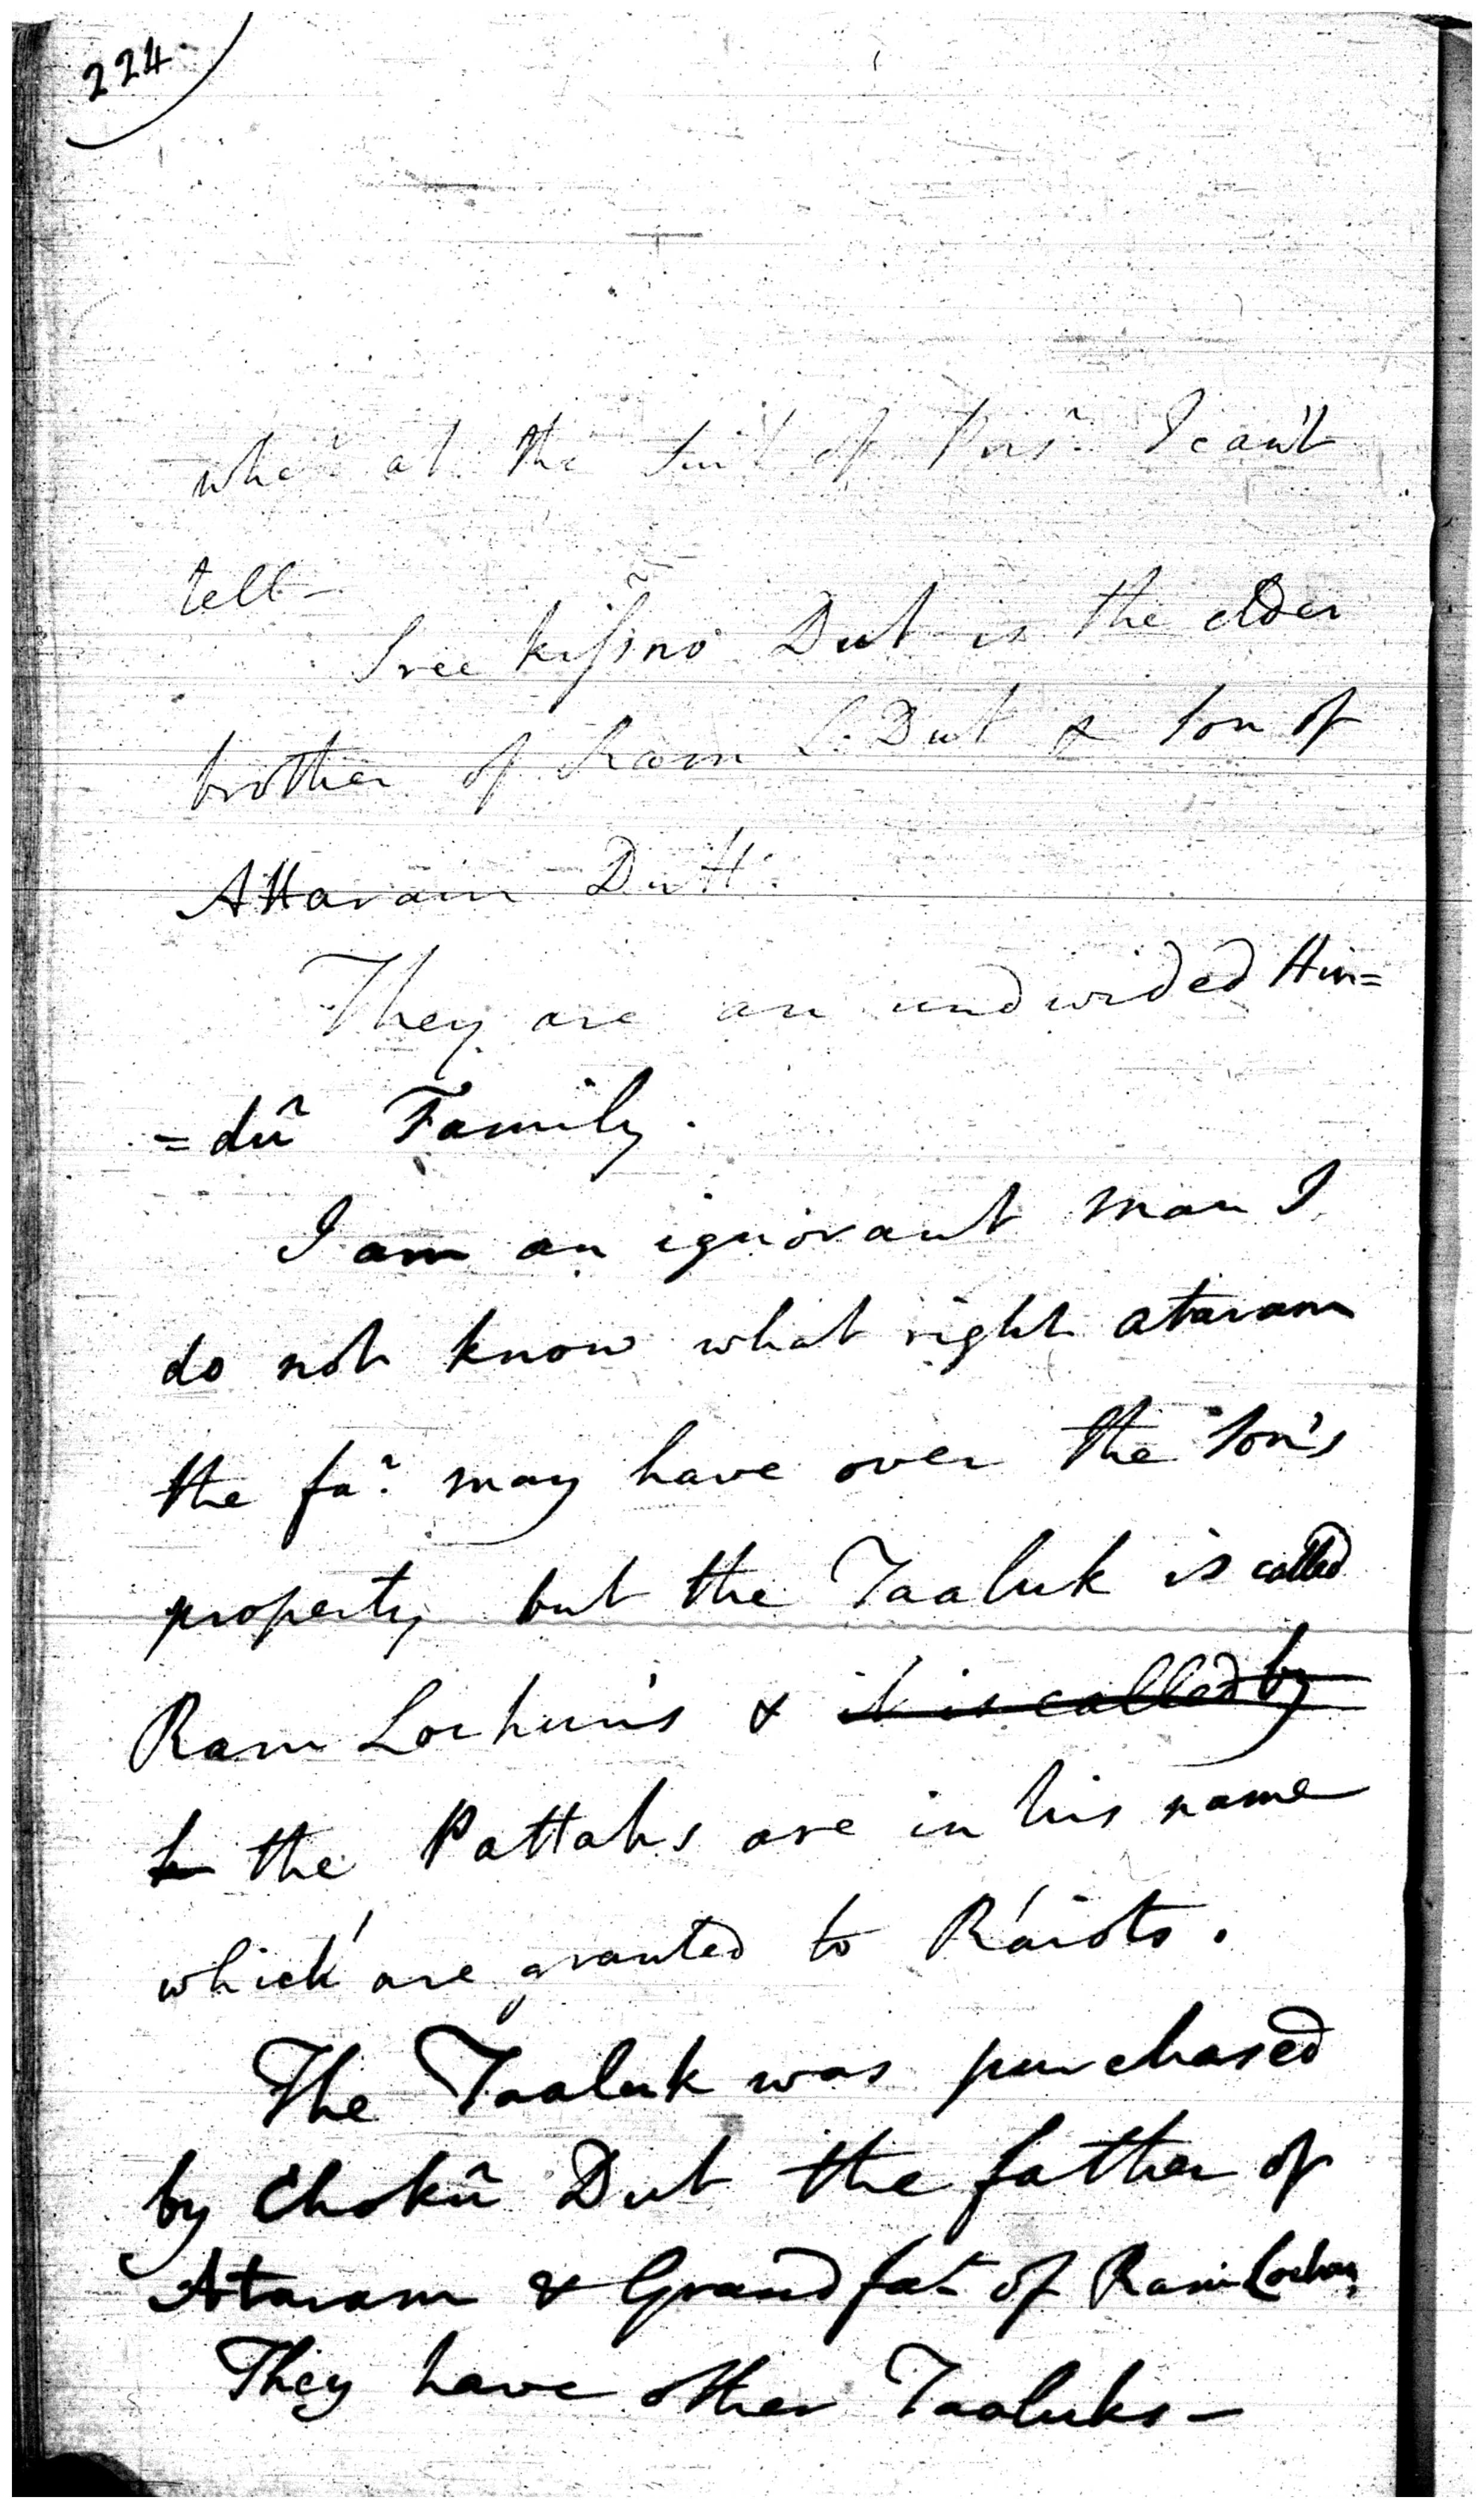 224
whe~ at the Suit of I can't
tell –
Sree Kissno Dut is the elder
brother of Ram L. Dut & Son of
Attaram Dutt.
They are an undivided Hin=
=dũ Family.
I am an ignorant man I
do not know what right ataram
the fa~. may have over the Son's
property but the Taaluk is called
Ram Lochun's & it is called by
h the Pattahs are in his name
which are granted to Ráiots.
The Taaluk was purchased
by Chokũ Dut the father of
Ataram & Grandfat~ of Ram Lochun
They have other Taaluks –